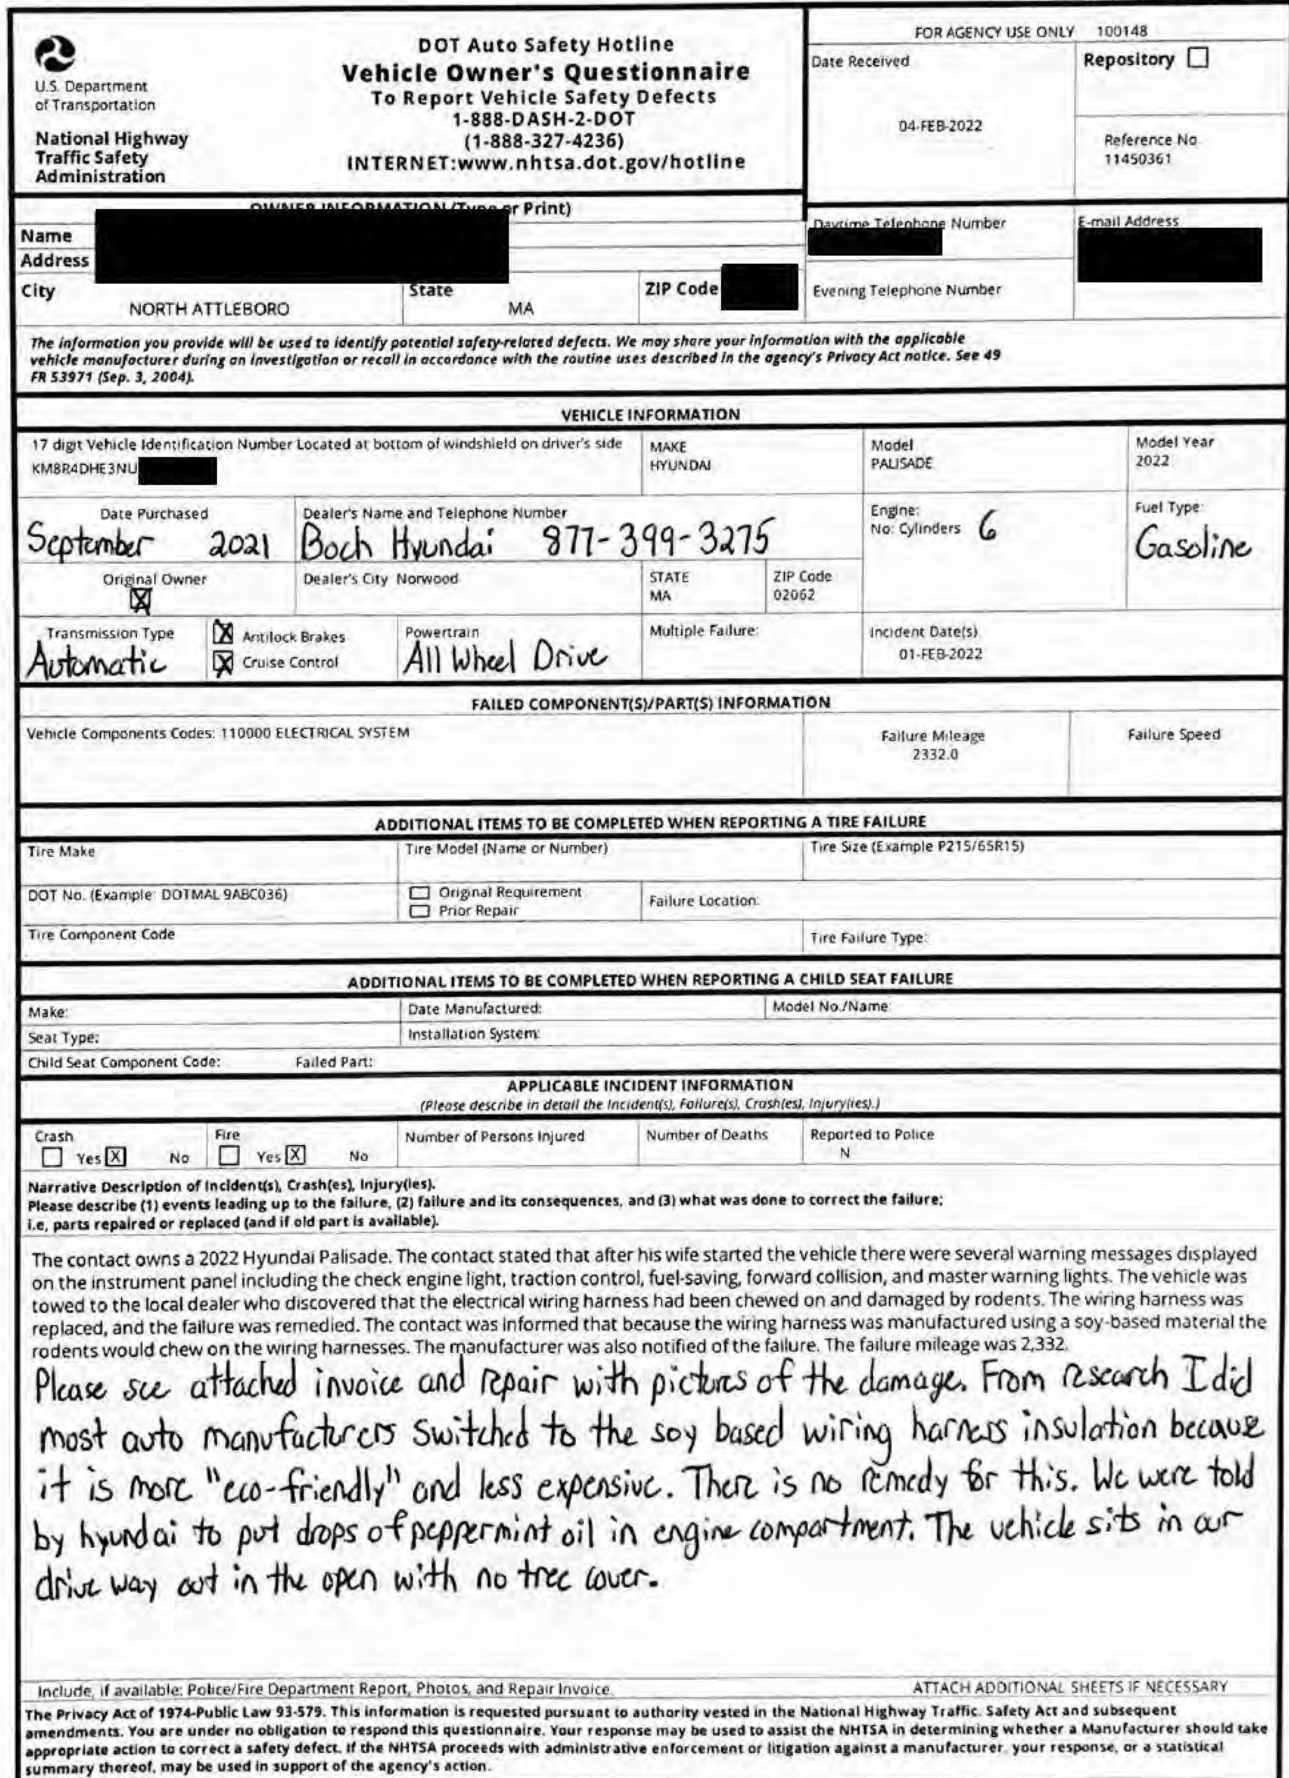 FOR AGENCY USE ONLY 100148
U.S. Department
of Transportation
National Highway
Traffic Safety
Administration
DOT Auto Safety Hotline
Vehicle Owner's Questionnaire
To Report Vehicle Safety Defects
1-888-DASH-2-DOT
(1-888-327-4236)
INTERNET:www.nhtsa.dot.gov/hotline
Date Received
04-FEB-2022
Repository
Reference No
11450361
OWNER INFORMATION (Type or Print)
Name
Address
City
NORTH ATTLEBORO
State
MA
ZIP Code
Daytime Telephone Number
E-mail Address
Evening Telephone Number
The information you provide will be used to identify potential safety-related defects. We may share your information with the applicable
vehicle manufacturer during an investigation or recall in accordance with the routine uses described in the agency's Privacy Act notice. See 49
FR 53971 (Sep. 3, 2004).
VEHICLE INFORMATION
17 digit Vehicle Identification Number Located at bottom of windshield on driver's side
KM8R4DHE3NU
MAKE
HYUNDAI
Model
PALISADE
Model Year
2022
Date Purchased
September 2021
Dealer's Name and Telephone Number
Boch Hyundai 877-399-3275
Engine:
No: Cylinders 6
Fuel Type:
Gasoline
Original Owner
X
Dealer's City Norwood
STATE
MA
ZIP Code
02062
Transmission Type
Automatic
X Antilock Brakes
X Cruise Control
Powertrain
All Wheel Drive
Multiple Failure:
Incident Date(s)
01-FEB-2022
FAILED COMPONENT(S)/PART(S) INFORMATION
Vehicle Components Codes: 110000 ELECTRICAL SYSTEM
Failure Mileage
2332.0
Failure Speed
ADDITIONAL ITEMS TO BE COMPLETED WHEN REPORTING A TIRE FAILURE
Tire Make
Tire Model (Name or Number)
Tire Size (Example P215/65R15)
DOT No. (Example: DOTMAL 9ABC036)
Original Requirement
Prior Repair
Failure Location:
Tire Component Code
Tire Failure Type:
ADDITIONAL ITEMS TO BE COMPLETED WHEN REPORTING A CHILD SEAT FAILURE
Make:
Date Manufactured:
Model No./Name:
Seat Type:
Installation System:
Child Seat Component Code: Failed Part:
APPLICABLE INCIDENT INFORMATION
(Please describe in detail the Incident(s), Failure(s), Crash(es), Injury(ies).)
Crash
Yes X No
Fire
Yes X No
Number of Persons Injured
Number of Deaths
Reported to Police
N
Narrative Description of Incident(s), Crash(es), Injury(ies).
Please describe (1) events leading up to the failure, (2) failure and its consequences, and (3) what was done to correct the failure;
i.e, parts repaired or replaced (and if old part is available).
The contact owns a 2022 Hyundai Palisade. The contact stated that after his wife started the vehicle there were several warning messages displayed
on the instrument panel including the check engine light, traction control, fuel-saving, forward collision, and master warning lights. The vehicle was
towed to the local dealer who discovered that the electrical wiring harness had been chewed on and damaged by rodents. The wiring harness was
replaced, and the failure was remedied. The contact was informed that because the wiring harness was manufactured using a soy-based material the
rodents would chew on the wiring harnesses. The manufacturer was also notified of the failure. The failure mileage was 2,332.
Please see attached invoice and repair with pictures of the damage. From research I did
most auto manufacturers switched to the soy based wiring harness insulation because
it is more "eco-friendly" and less expensive. There is no remedy for this. We were told
by hyundai to put drops of peppermint oil in engine compartment. The vehicle sits in our
drive way out in the open with no tree cover.
Include, if available: Police/Fire Department Report, Photos, and Repair Invoice.
ATTACH ADDITIONAL SHEETS IF NECESSARY
The Privacy Act of 1974-Public Law 93-579. This information is requested pursuant to authority vested in the National Highway Traffic. Safety Act and subsequent
amendments. You are under no obligation to respond this questionnaire. Your response may be used to assist the NHTSA in determining whether a Manufacturer should take
appropriate action to correct a safety defect. If the NHTSA proceeds with administrative enforcement or litigation against a manufacturer, your response, or a statistical
summary thereof, may be used in support of the agency's action.